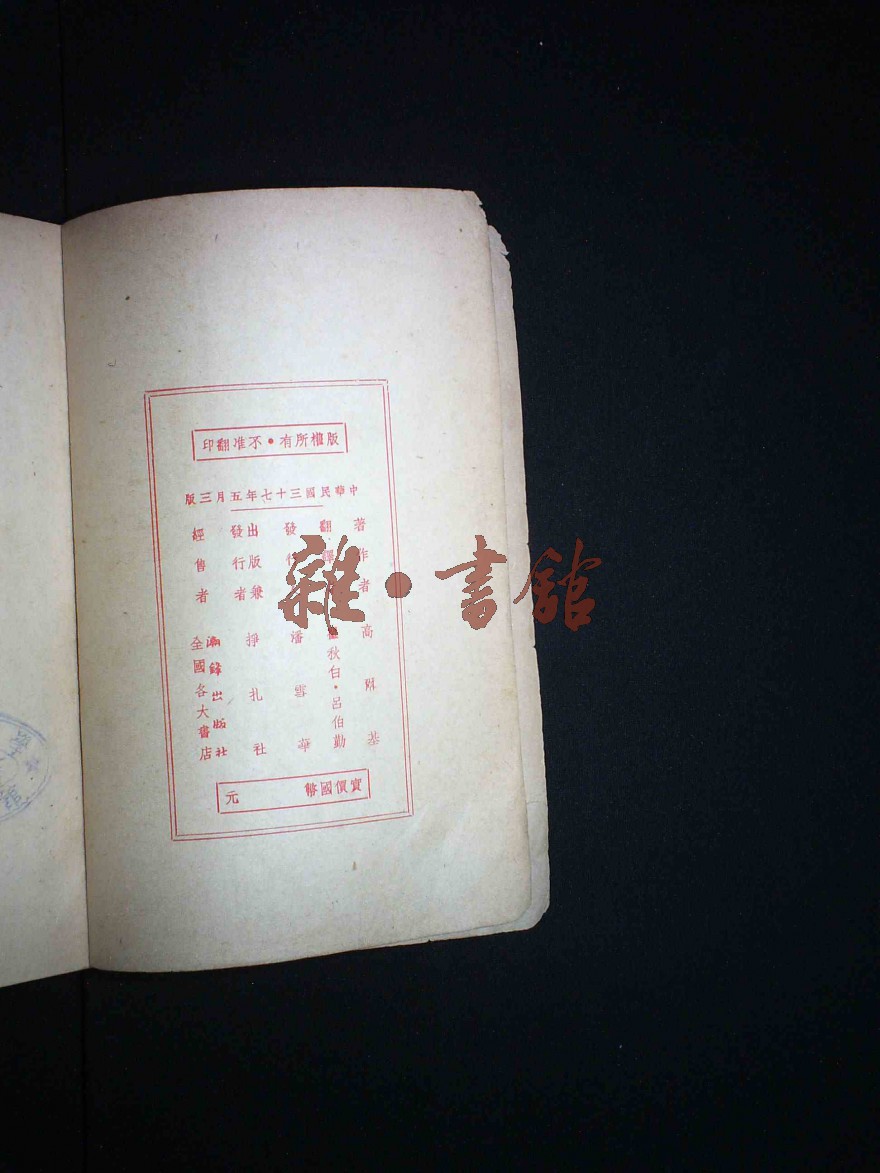 版權所有•不准翻印
中華民國三十七年五月三版
著作者 高爾基
翻譯 秋白・呂伯勤
發行 潘雪華
出版兼發行者 掙扎社
經售者 出版社
全國各大書店
實價國幣 元
雜•書館